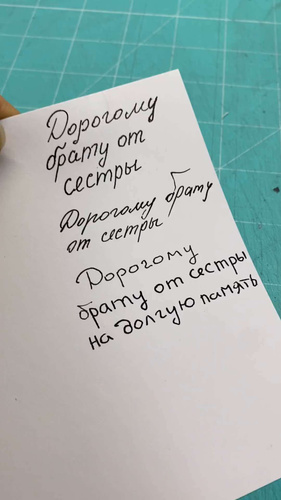 Дорогому
брату от
сестры
Дорогому брату
от сестры
Дорогому
брату от сестры
на долгую память